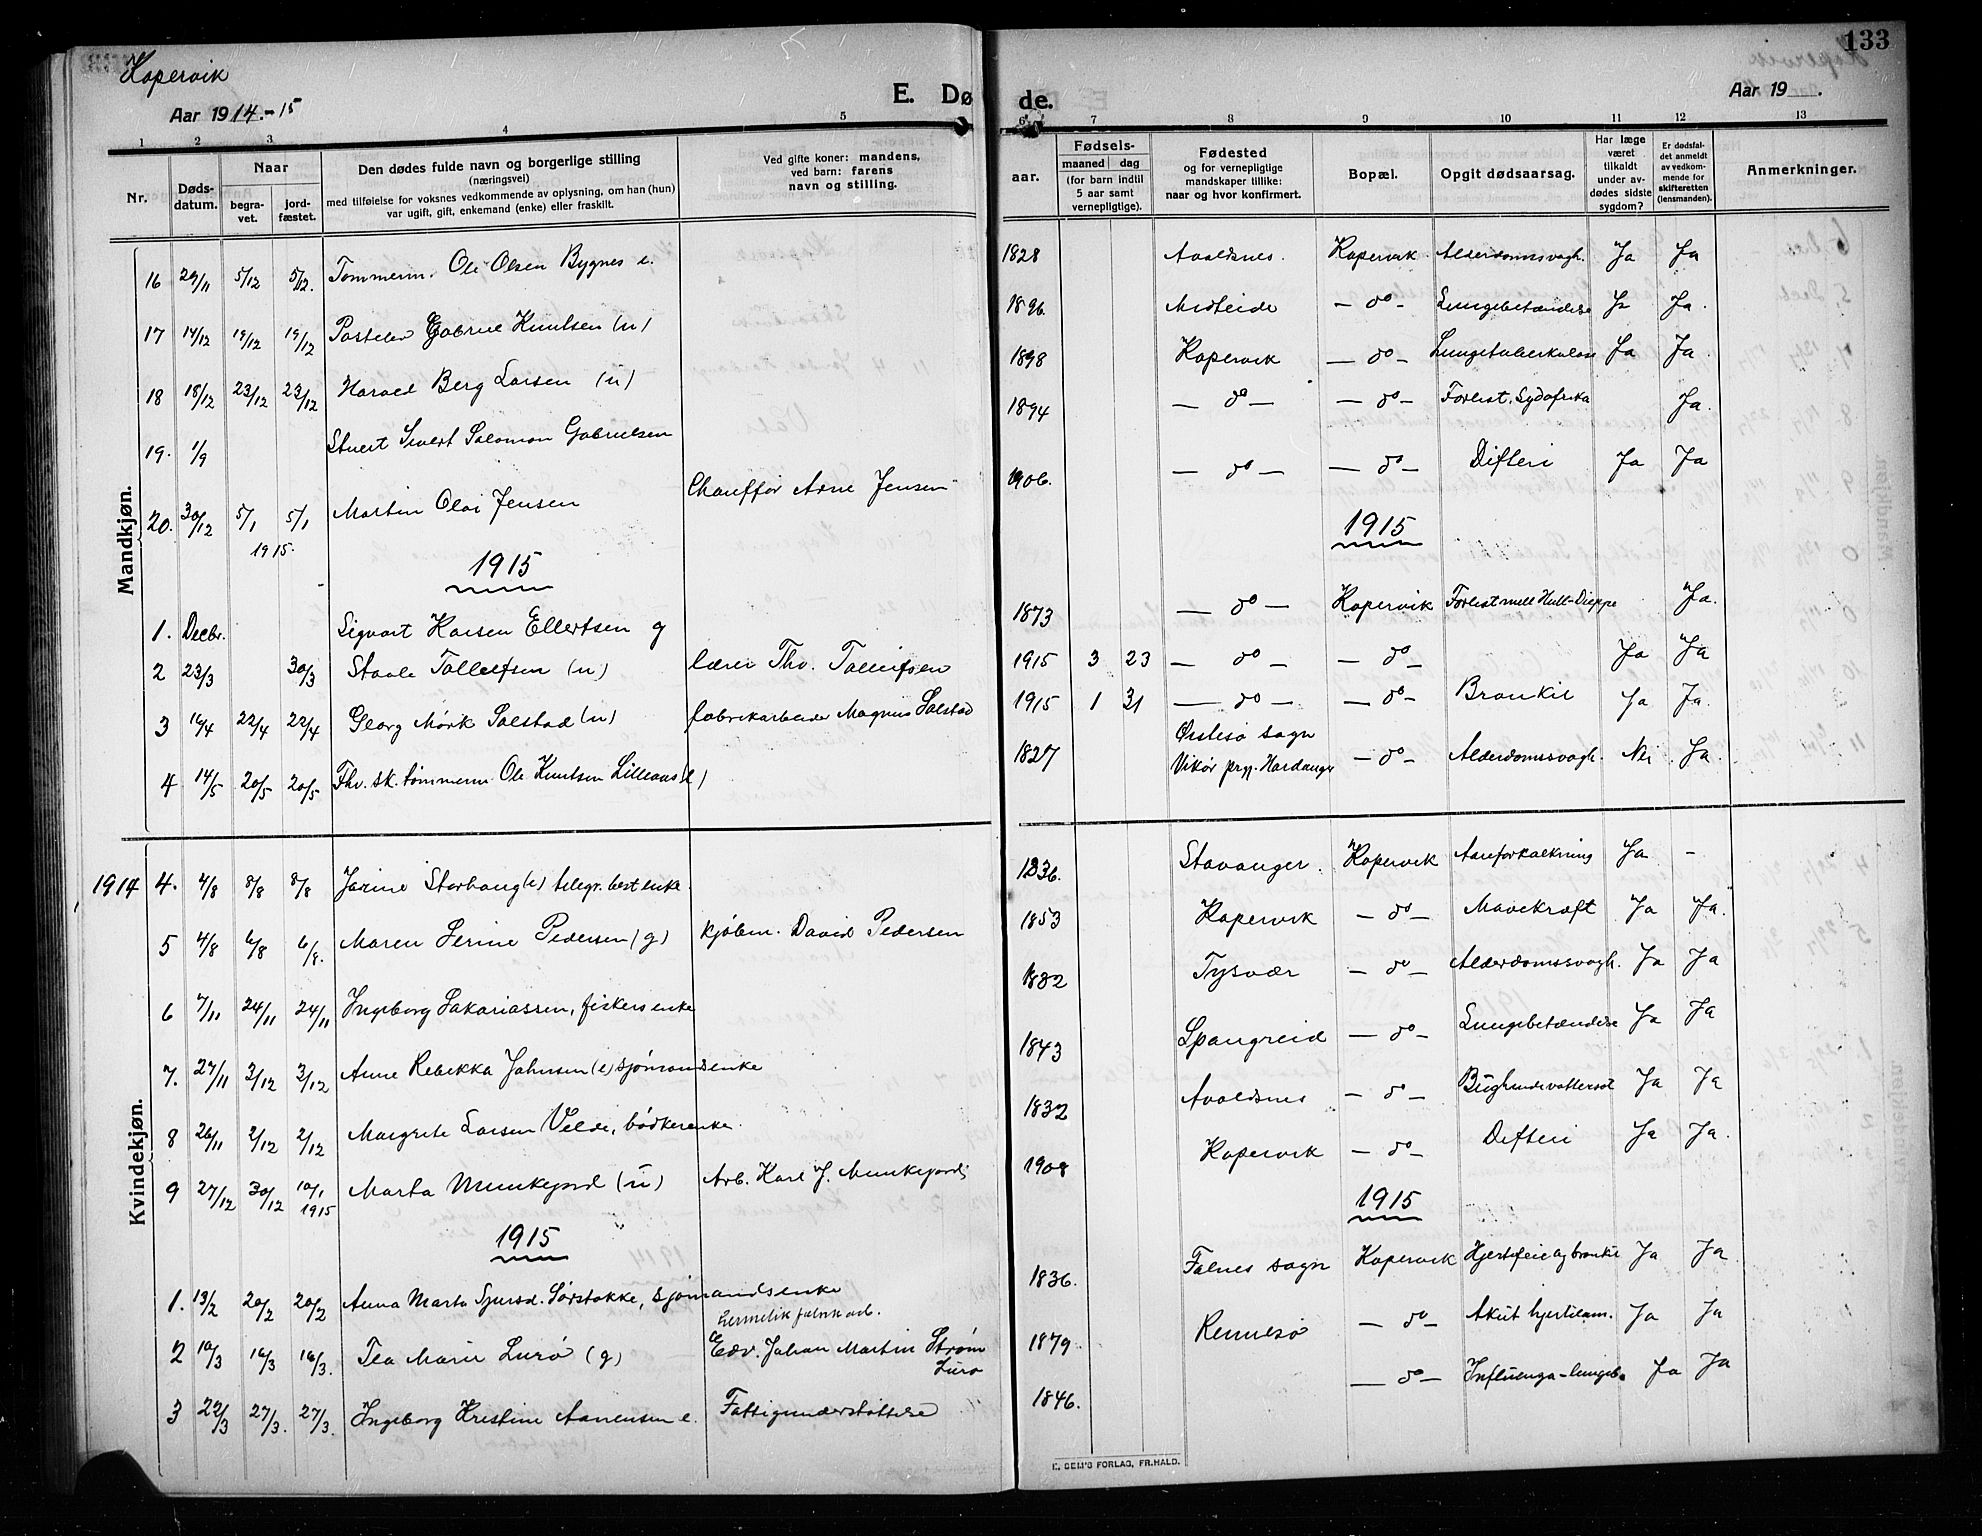 Kopervik
Aar 1914.-15
E. Dø de.
Aar 19 .
133
1 2 3. 4 5 6 7 8 9 10 11 12 13
Nr. Døds-datum. Naar begra-vet. jord-fæstet.
Den dødes fulde navn og borgerlige stilling
(næringsvei)
med tilføielse for voksnes vedkommende av oplysning, om han (hun)
var ugift, gift, enkemand (enke) eller fraskilt.
Ved gifte koner: mandens,
ved barn: farens
navn og stilling.
Fødsels-
aar. maaned dag
(for barn indtil
5 aar samt
vernepligtige).
Fødested
og for vernepligtige
mandskaper tillike:
naar og hvor konfirmert.
Bopæl.
Opgit dødsaarsag.
Har læge
været
tilkaldt
under av-
dødes sidste
sygdom?
Er dødsfal-
det anmeldt
av vedkom-
mende for
skifteretten
(lensmanden).
Anmerkninger.
Mandkjøn.
16 29/11 5/12 5/12. Tømmerm. Ole Olsen Bygnes e. 1828 Avaldsnes. Kopervik Alderdomssvagh. Ja Ja
17 14/12 19/12 19/12 Postelev Gabriel Knutsen (u) 1896. — do — Lungebetændelse Ja Ja.
18 18/12 23/12 23/12 Harald Berg Larsen (u) 1898 Kopervik — do — Lungetuberkulose Ja Ja.
19. 1/9 Sivert Salomon Gabrielsen 1894 — do — — do — Forlist. Sydafrika Ja.
20. 30/12 5/1 5/1 Martin Olai Jensen Chauffør Arne Jensen 1906. — do — — do — Difteri Ja Ja
1915.
1915 1915
1. Decbr. Sigvart Karsen Ellertsen g 1873 — do — Kopervik Forlist mell Hull-Dieppe Ja.
2 23/3 30/3 Staale Tollefsen (u) lærer Thv. Tollefsen 1915 3 23 — do — — do — Ja Ja
3 16/4 22/4 22/4 Georg Mørk Solstad (u) fabrikarbeider Magnus Solstad 1915 1 31 — do — — do — Bronkit Ja Ja.
4 14/5 20/5 20/5 Fhv. sk. tømmerm. Ole Knutsen Lilleaas (e) 1827 Østesø sogn
Vikør prgj. Hardanger — do — Alderdomssvagh. Nei Ja.
Kvindekjøn.
1914 4. 4/8 8/8 8/8 Jarine Storhaug (e) telegr. best enke. 1836. Stavanger. Kopervik Aareforkalkning Ja -
5 4/8 6/8 6/8. Maren Serine Pedersen (g) kjøbm. David Pedersen 1853 Kopervik — do — Mavekræft Ja Ja.
6 7/11 24/11 24/11 Ingeborg Sakariassen, fiskers enke 1832 Tysvær — do — Alderdomssvagh. Ja Ja
7. 27/11 3/12 3/12 Anne Rebekka Johnsen (e) sjømandsenke 1843 Spangreid — do — Lungebetændelse Ja Ja
8 26/11 2/12 2/12 Margrete Larsen Velde, bødkerenke. 1832 Avaldsnes — do — Bughindevattersot Ja Ja
9 27/12 30/12 10/1 1915 Marta Munkejord (u) Arb. Karl J. Munkejord 1908 Kopervik — do — Difteri Ja Ja.
1915 1915
1. 13/2 20/2 20/2 Anna Marta Sjursd. Sørstokke, sjømandsenke 1836. Falnes sogn Kopervik Hjertefeil og bronkit Ja Ja
2 10/3 16/3 16/3. Tea Marie Lurø (g) hermetik fabrik arb.
Edv. Johan Martin Strøm
Lurø 1879 Rennesø — do — Akut hjertelam. Ja Ja
3 22/3 27/3. 27/3. Ingeborg Kristine Aanensen e. Fattigunderstøttelse 1846. — do — Influenza-lungeb. Ja Ja
E. SEM'S FORLAG, FR.HALD.